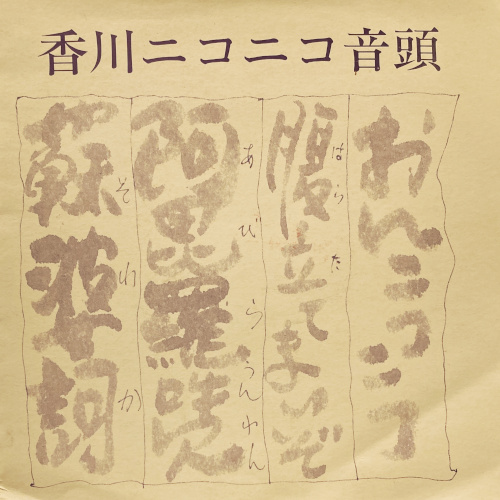 香川ニコニコ音頭
おんニコニコ
腹立てまいぞ
はらた
阿毘羅吽欠
あびらうんけん
蘇婆訶
そわか